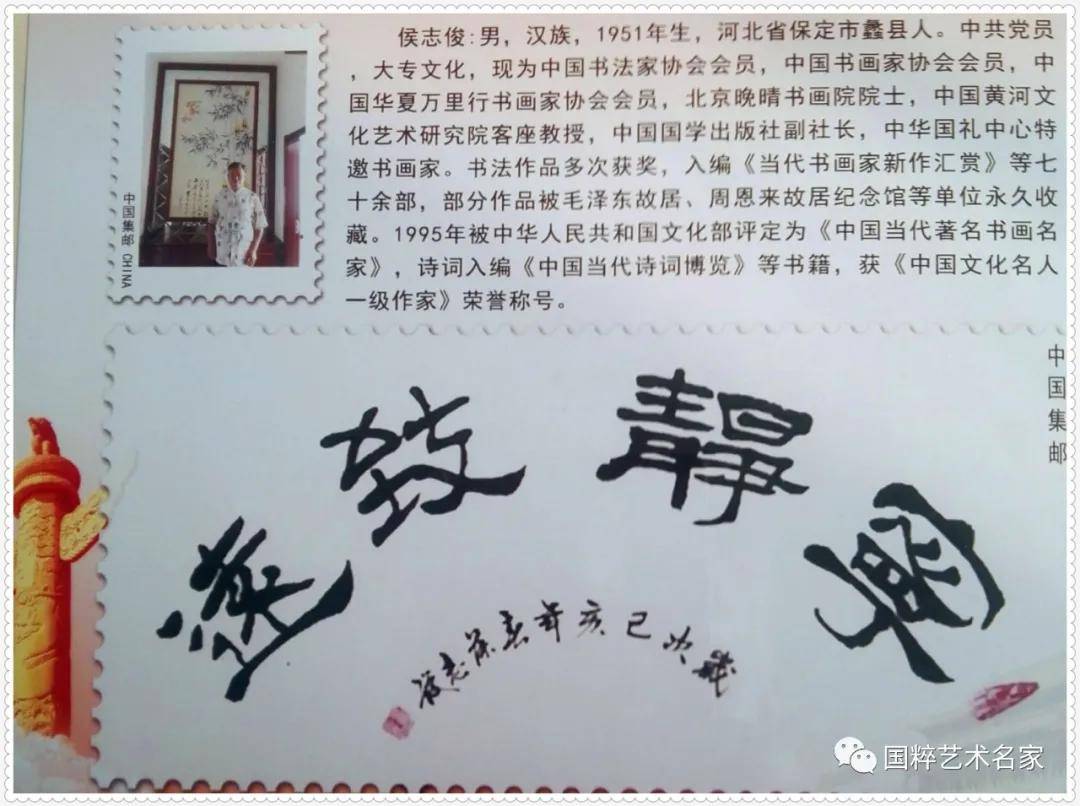 侯志俊:男,汉族,1951年生,河北省保定市蠡县人。中共党员
,大专文化,现为中国书法家协会会员,中国书画家协会会员,中
国华夏万里行书画家协会会员,北京晚晴书画院院士,中国黄河文
化艺术研究院客座教授,中国国学出版社副社长,中华国礼中心特
邀书画家。书法作品多次获奖,入编《当代书画家新作汇赏》等七
十余部,部分作品被毛泽东故居、周恩来故居纪念馆等单位永久收
藏。1995年被中华人民共和国文化部评定为《中国当代著名书画名
家》,诗词入编《中国当代诗词博览》等书籍,获《中国文化名人
一级作家》荣誉称号。
中国集邮 CHINA
中国集邮
寧靜致遠
歲次己亥年春侯志俊
国粹艺术名家